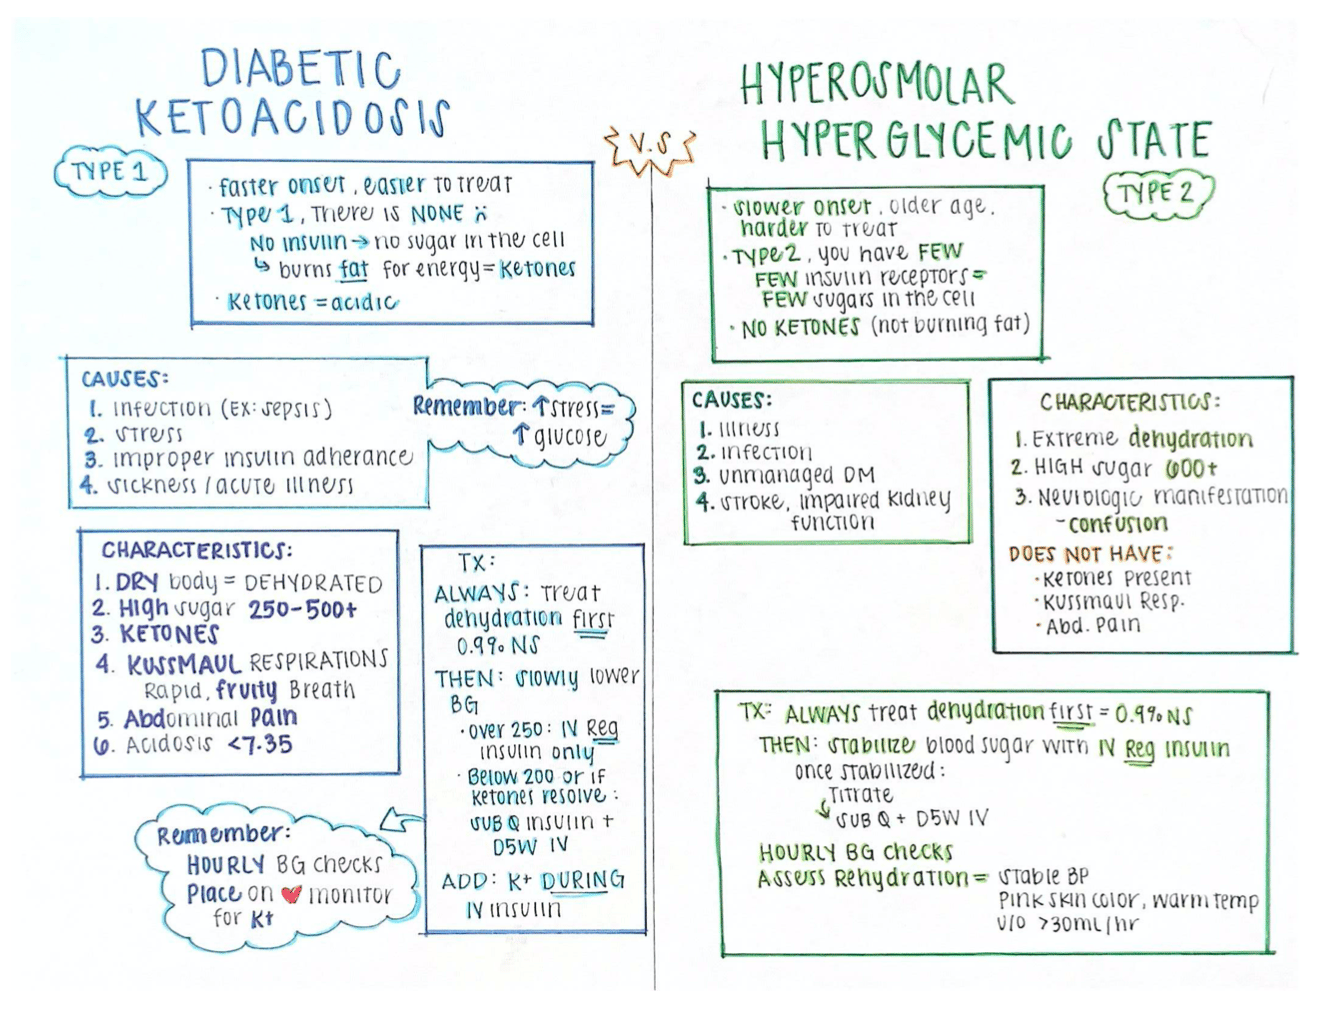 DIABETIC
KETOACIDOSIS
TYPE 1
· faster onset, easier to treat
· Type 1, there is NONE
No insulin → no sugar in the cell
↳ burns fat for energy = Ketones
· Ketones = acidic
CAUSES:
1. Infection (EX: sepsis)
2. stress
3. improper insulin adherance
4. sickness / acute illness
Remember: ↑ stress =
↑ glucose
CHARACTERISTICS:
1. DRY body = DEHYDRATED
2. High sugar 250-500+
3. KETONES
4. KUSSMAUL RESPIRATIONS
Rapid, fruity Breath
5. Abdominal Pain
6. Acidosis <7.35
TX:
ALWAYS: Treat
dehydration first
0.9% NS
THEN: slowly lower
BG
· over 250: IV Reg
insulin only
· Below 200 or if
ketones resolve:
SUB Q insulin +
D5W IV
ADD: K+ DURING
IV insulin
Remember:
HOURLY BG checks
Place on ❤ monitor
for K+
V.S
HYPEROSMOLAR
HYPERGLYCEMIC STATE
TYPE 2
· slower onset, older age,
harder to treat
· Type 2, you have FEW
FEW insulin receptors =
FEW sugars in the cell
· NO KETONES (not burning fat)
CAUSES:
1. Illness
2. infection
3. unmanaged DM
4. stroke, impaired kidney
function
CHARACTERISTICS:
1. Extreme dehydration
2. HIGH sugar 600+
3. Neurologic manifestation
- confusion
DOES NOT HAVE:
· Ketones present
· Kussmaul Resp.
· Abd. Pain
TX: ALWAYS treat dehydration first = 0.9% NS
THEN: stabilize blood sugar with IV Reg insulin
once stabilized:
Titrate
↳ SUB Q + D5W IV
HOURLY BG checks
Assess Rehydration = stable BP
Pink skin color, warm temp
U/O >30mL/hr